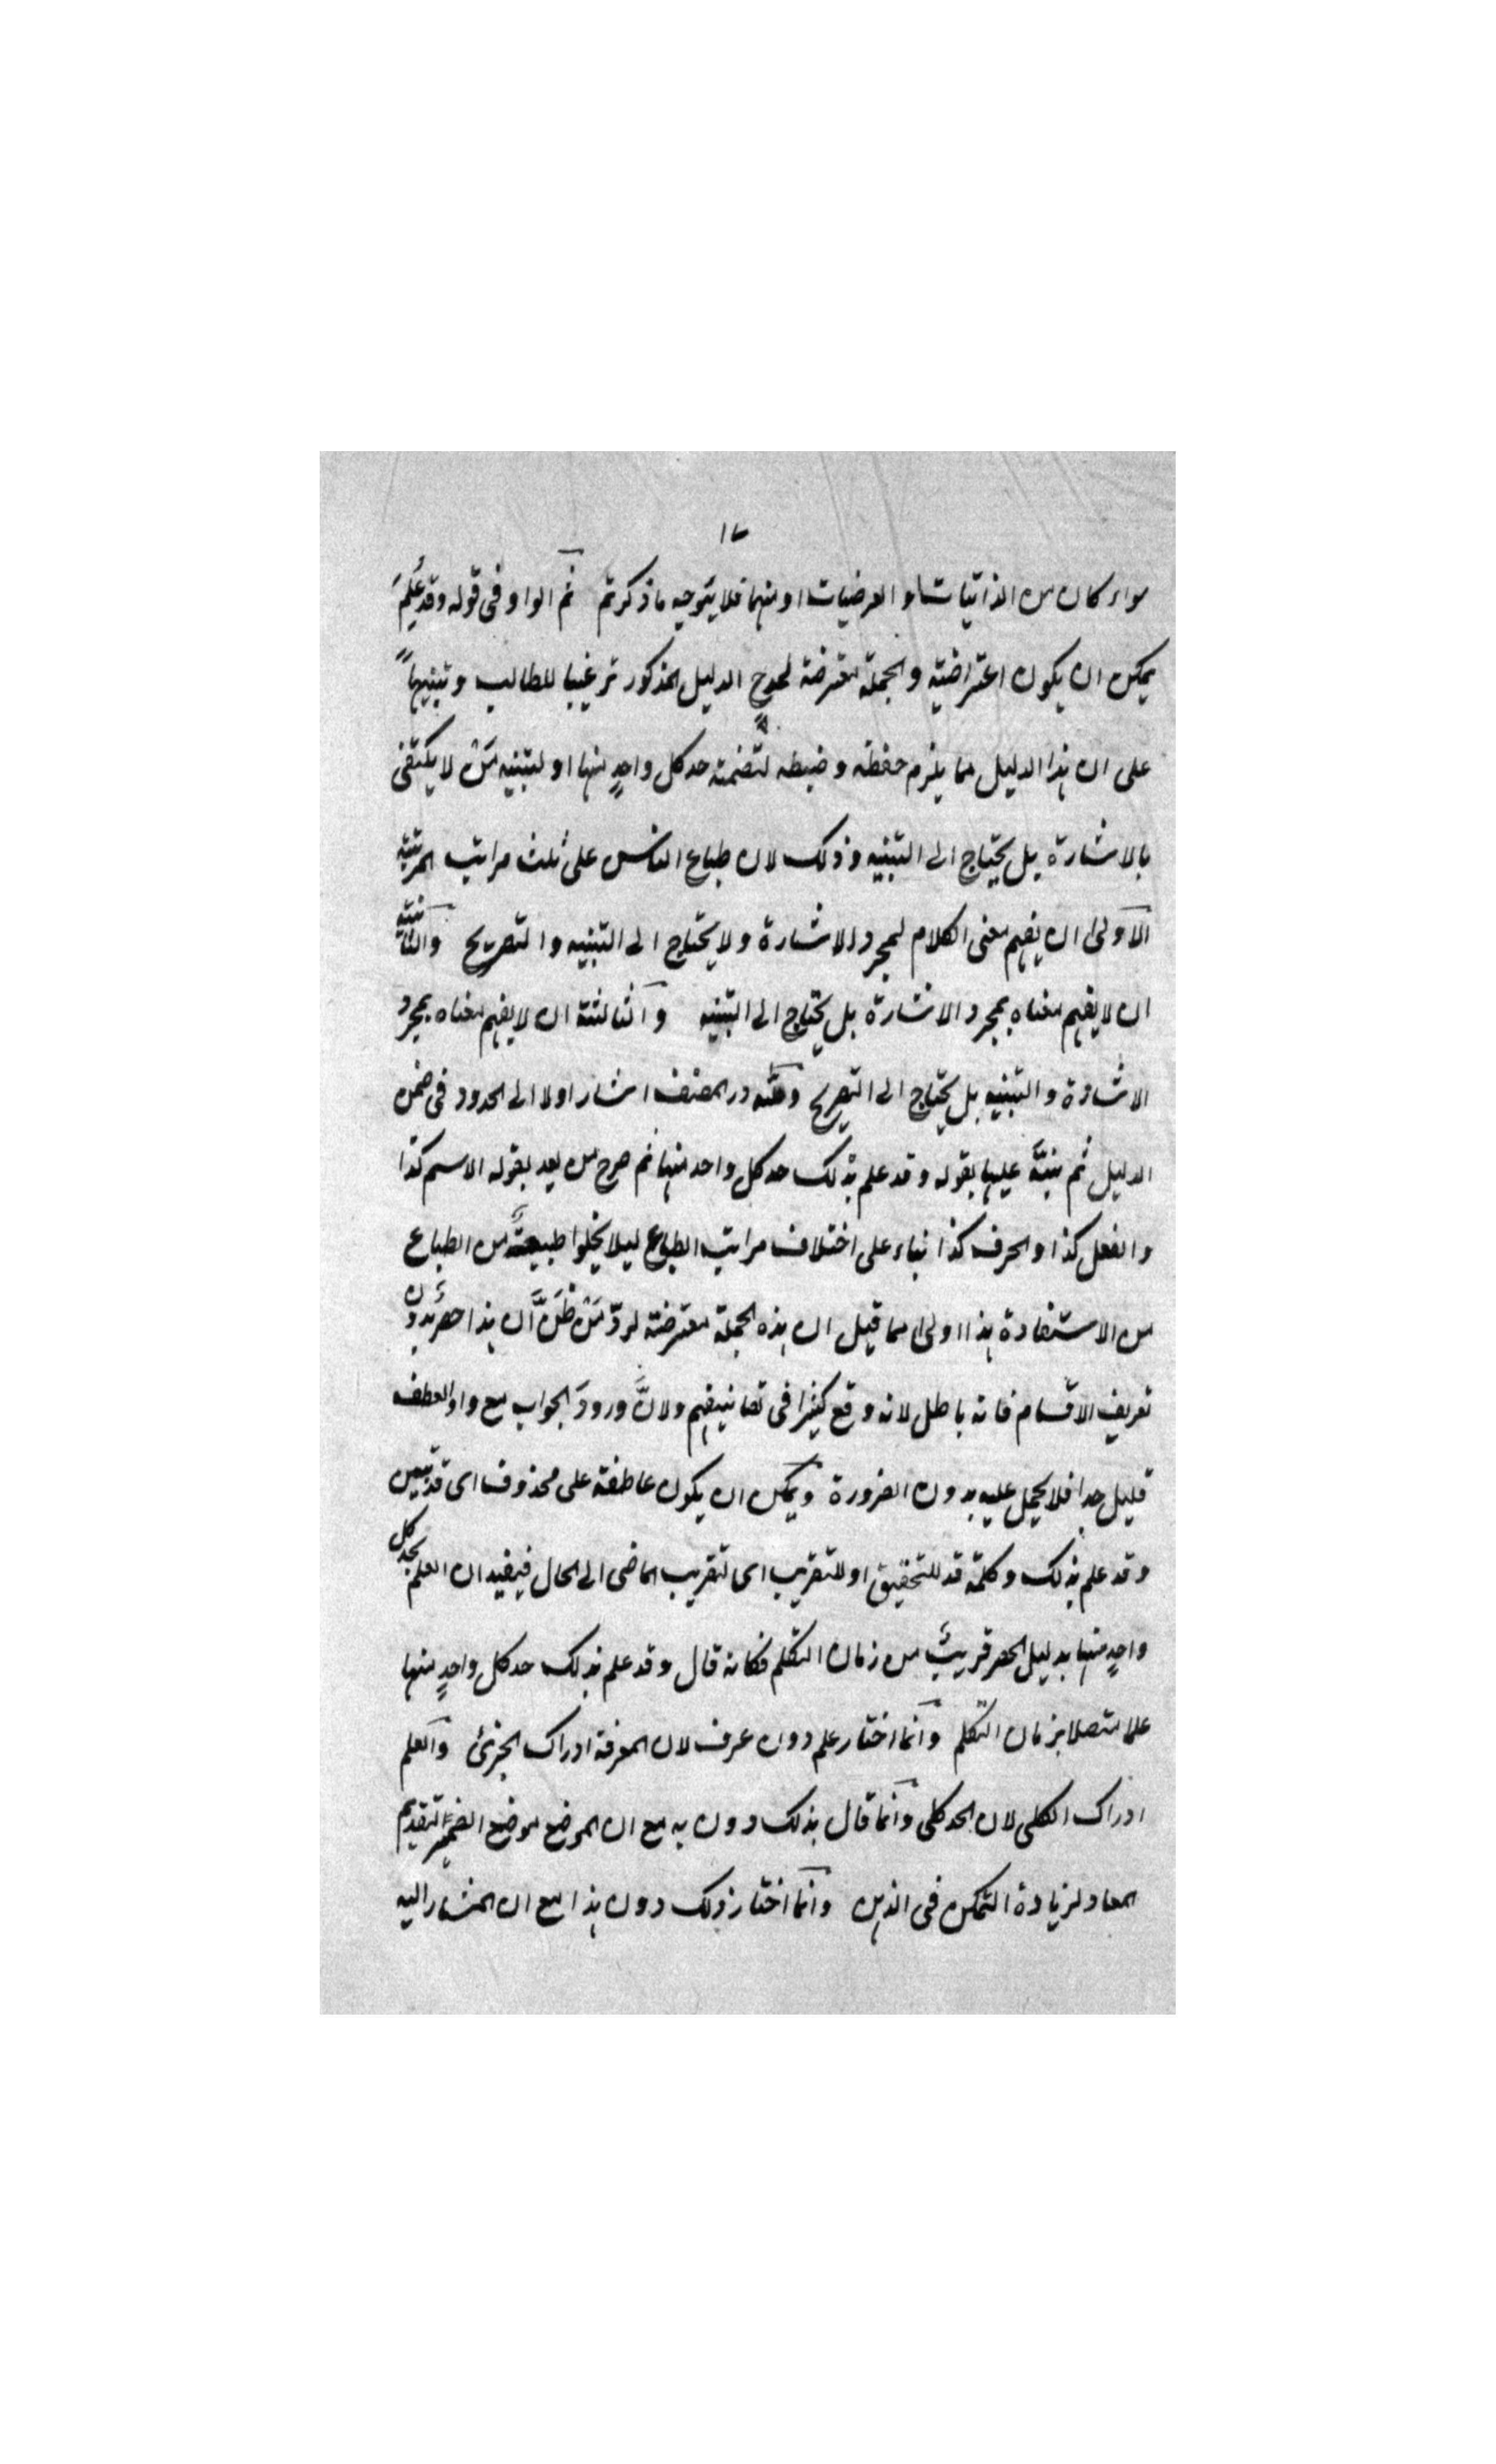 ١٧
سواء كان من الذاتيات او العرضيات او منهما فلا يتوجه ما ذكرتم ثم الواو في قوله وقد عُلِمَ
يمكن ان يكون اعتراضية والجملة معترضة لمدح الدليل المذكور ترغيبا للطالب وتنبيهاً
على ان هذا الدليل مما يلزم حفظه وضبطه لتضمنه حد كل واحدٍ منها او لتنبيه مَنْ لا يكتفى
بالاشارة بل يحتاج الى التنبيه وذلك لان طباع الناس على ثلث مراتب المرتبة
الاولى ان يفهم معنى الكلام لمجرد الاشارة ولا يحتاج الى التنبيه والتصريح والثانية
ان لا يفهم معناه بمجرد الاشارة بل يحتاج الى التنبيه والثالثة ان لا يفهم معناه بمجرد
الاشارة والتنبيه بل يحتاج الى التصريح ولله در المصنف اشار اولا الى الحدود في ضمن
الدليل ثم نبَّهَ عليها بقوله وقد علم بذلك حد كل واحد منها ثم صرح من بعد بقوله الاسم كذا
والفعل كذا والحرف كذا بناء على اختلاف مراتب الطباع ليلا يخلوا طبيعةً من الطباع
من الاستفادة هذا اولى مما قيل ان هذه الجملة معترضة لردّ مَنْ ظَنَّ اَن هذا حصرٌ بدون
تعريف الاقسام فانه باطل لانه وقع كثيرا في تصانيفهم ولانَّ ورودَ الجواب مع واو العطف
قليل جدا فلا يحمل عليه بدون الضرورة ويمكن ان يكون عاطفة على محذوف اى قد تبين
وقد علم بذلك وكلمة قد للتحقيق او للتقريب اى لتقريب الماضى الى الحال فيفيد ان العلم بحد كل
واحدٍ منها بدليل الحصر قريبٌ من زمان التكلم فكانه قال وقد علم بذلك حد كل واحدٍ منها
علما متصلا بزمان التكلم وانما اختار علم دون عرف لان المعرفة ادراك الجزئ والعلم
ادراك الكلى لان الحد كلى وانما قال بذلك دون به مع ان الموضع موضع الضمير لتقديم
المعاد لزيادة التمكن في الذهن وانما اختار ذلك دون هذا مع ان المشار اليه